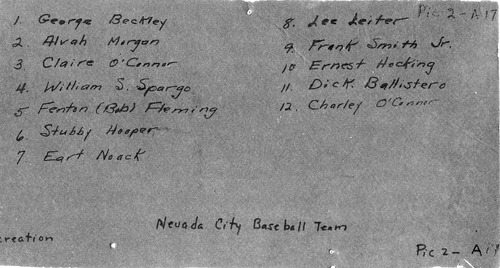 1. George Beckley
2. Alvah Morgan
3 Claire O'Connor
4. William S. Spargo
5 Fenton (Bob) Fleming
6 Stubby Hooper
7 Earl Noack
Pic 2 - A17
8. Lee Leiter
9. Frank Smith Jr.
10 Ernest Hocking
11. Dick Ballistero
12. Charley O'Connor
Nevada City Baseball Team
creation
Pic 2 - A17